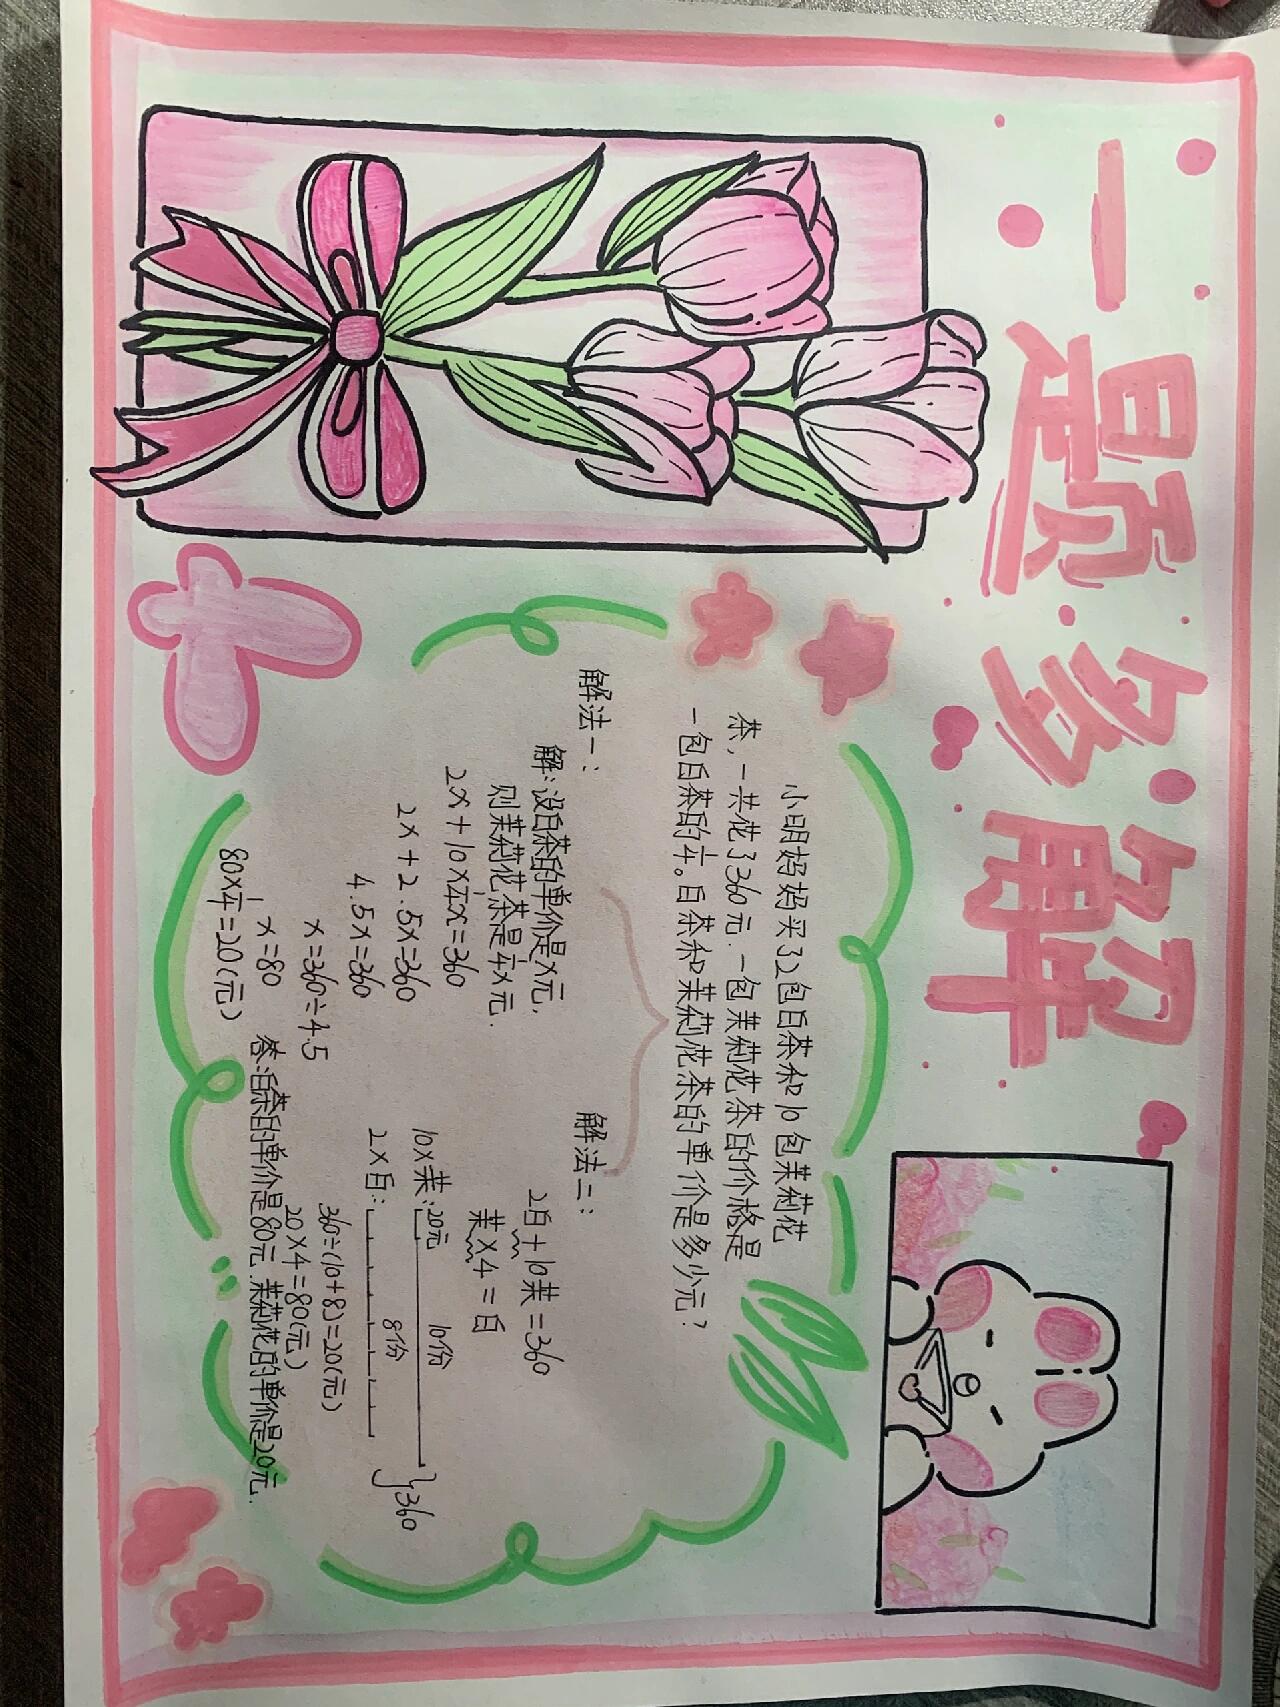 一题多解
小明妈妈买了2包白茶和10包茉莉花
茶，一共花了360元．一包茉莉花茶的价格是
一包白茶的1/4。白茶和茉莉花茶的单价是多少元？
解法一：
解：设白茶的单价是x元，
则茉莉花茶是1/4x元．
2x+10×1/4x=360
2x+2.5x=360
4.5x=360
x=360÷4.5
x=80
80×1/4=20(元)
解法二：
2白+10茉=360
茉×4=白
10×茉：20元 10份
2×白： 8份
}360
360÷(10+8)=20(元)
20×4=80(元)
答：白茶的单价是80元．茉莉花的单价是20元．